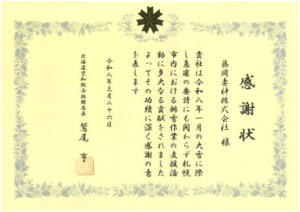 感謝状
藤岡幸神株式会社 様
貴社は令和八年一月の大雪に際
し急遽の要請にも関わらず札幌
市内における排雪作業の支援活
動に多大なる貢献をされました
よってその功績に深く感謝の意
を表します
令和八年三月二十六日
北海道空知総合振興局長
鷲尾 亨